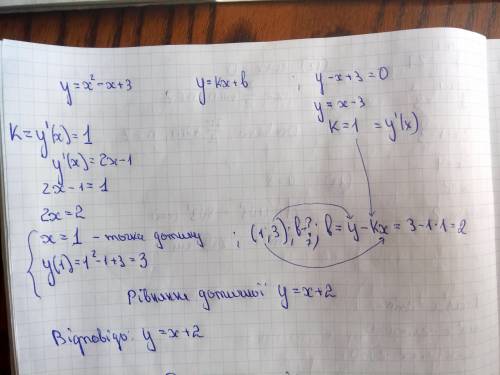 y = x² - x + 3 ; y = kx + b ; y - x + 3 = 0
y = x - 3
K = 1 = y'(x)
K = y'(x) = 1
y'(x) = 2x - 1
2x - 1 = 1
2x = 2
x = 1 – точка дотику ; (1, 3); b - ?; b = y - kx = 3 - 1·1 = 2
y(1) = 1² - 1 + 3 = 3
Рівняння дотичної y = x + 2
Відповідь: y = x + 2